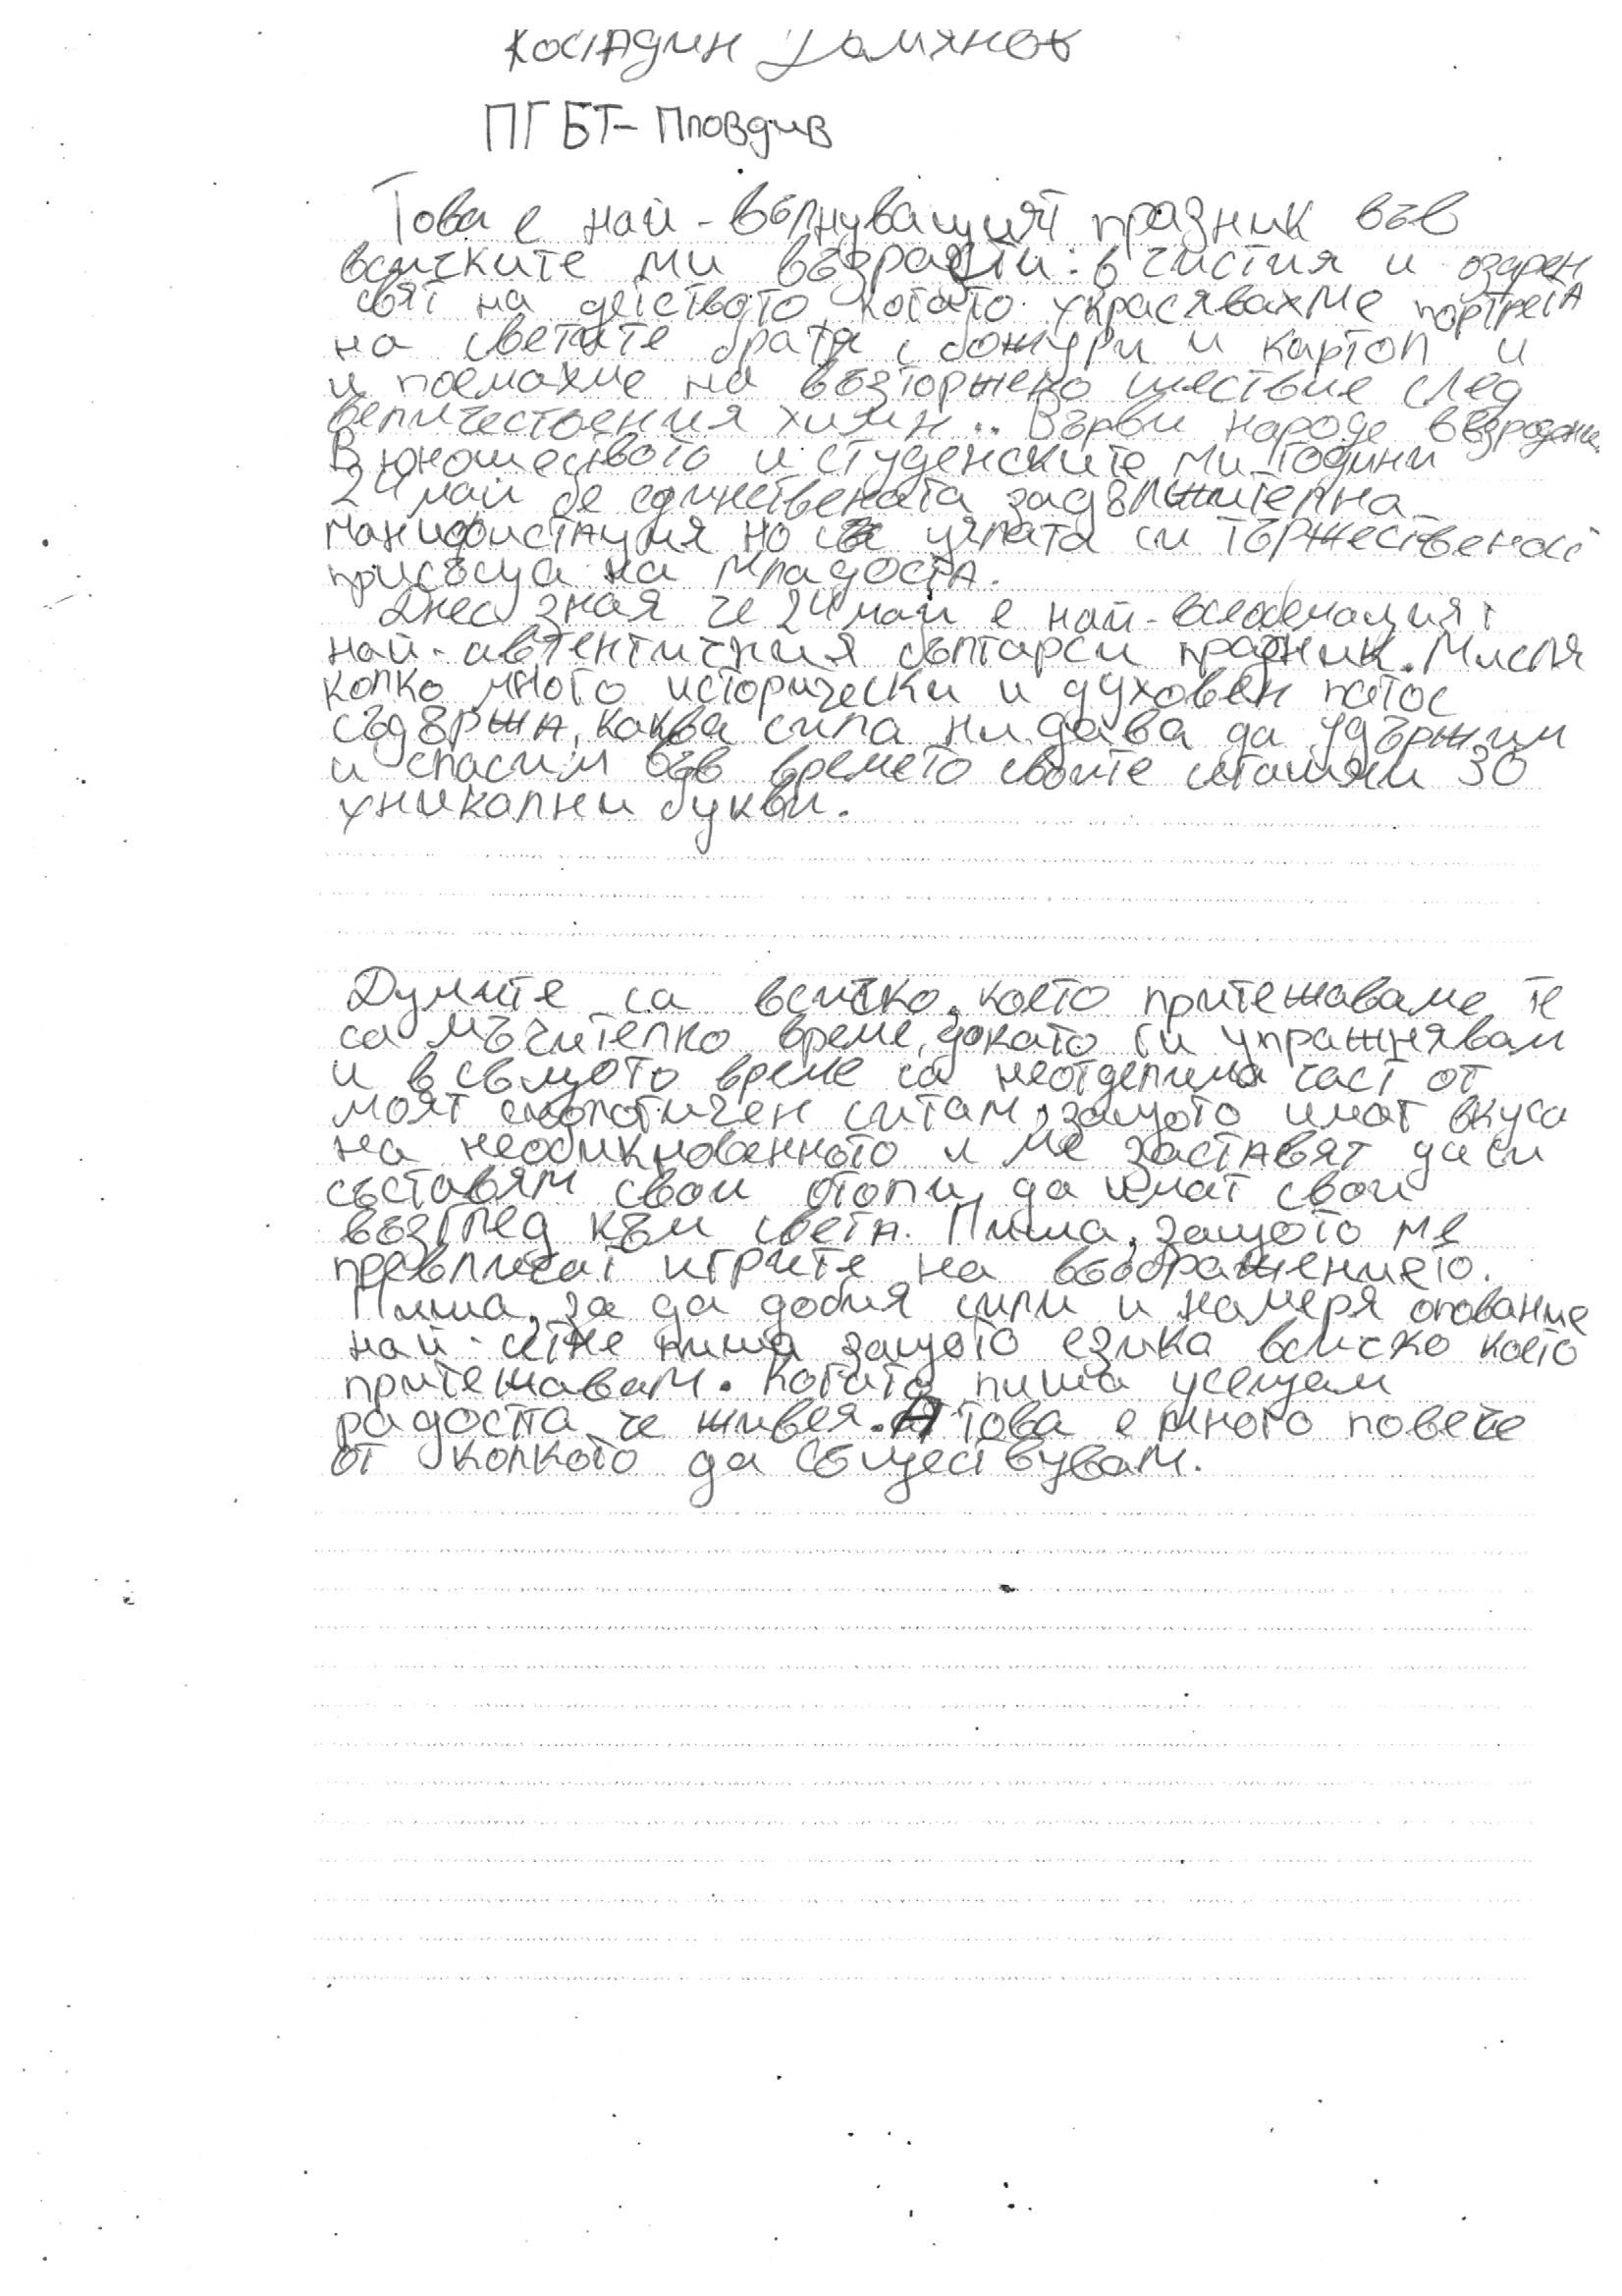 Костадин Дамянов
ПГБТ- Пловдив
Това е най-вълнуващият празник във
всичките ми възрасти: в чистия и озарен
свят на детството, когато украсявахме портрета
на светите братя с божури и картоп и
и поемахме на възторжено шествие след
величествения химн .. Върви народе възродени.
В юношеството и студенските ми години
24 май бе единствената задължителна
манифистация но със цялата си тържественост
присъща на младоста.
Днес зная че 24 май е най-всеобемащия т
най-автентичния български празник. Мисля
колко много исторически и духовен патос
съдържа, каква сила ни дава да удържим
и спасим във времето своите 30
уникални букви.
Думите са всичко, което притежаваме те
са мъчителко време, докато ги упражнявам
и в същото време са неотделима част от
моят ситам, защото имат вкуса
на необикновенното и ме заставят да си
съставям свои да имат свои
възглед към света. Пиша, защото ме
превличат игрите на въображението.
Пиша, за да добия сили и намеря опование
най-сетне пиша защото езика всичко което
притежавам. Когато пиша усещам
радостта че живея. А това е много повече
от колкото да съществувам.